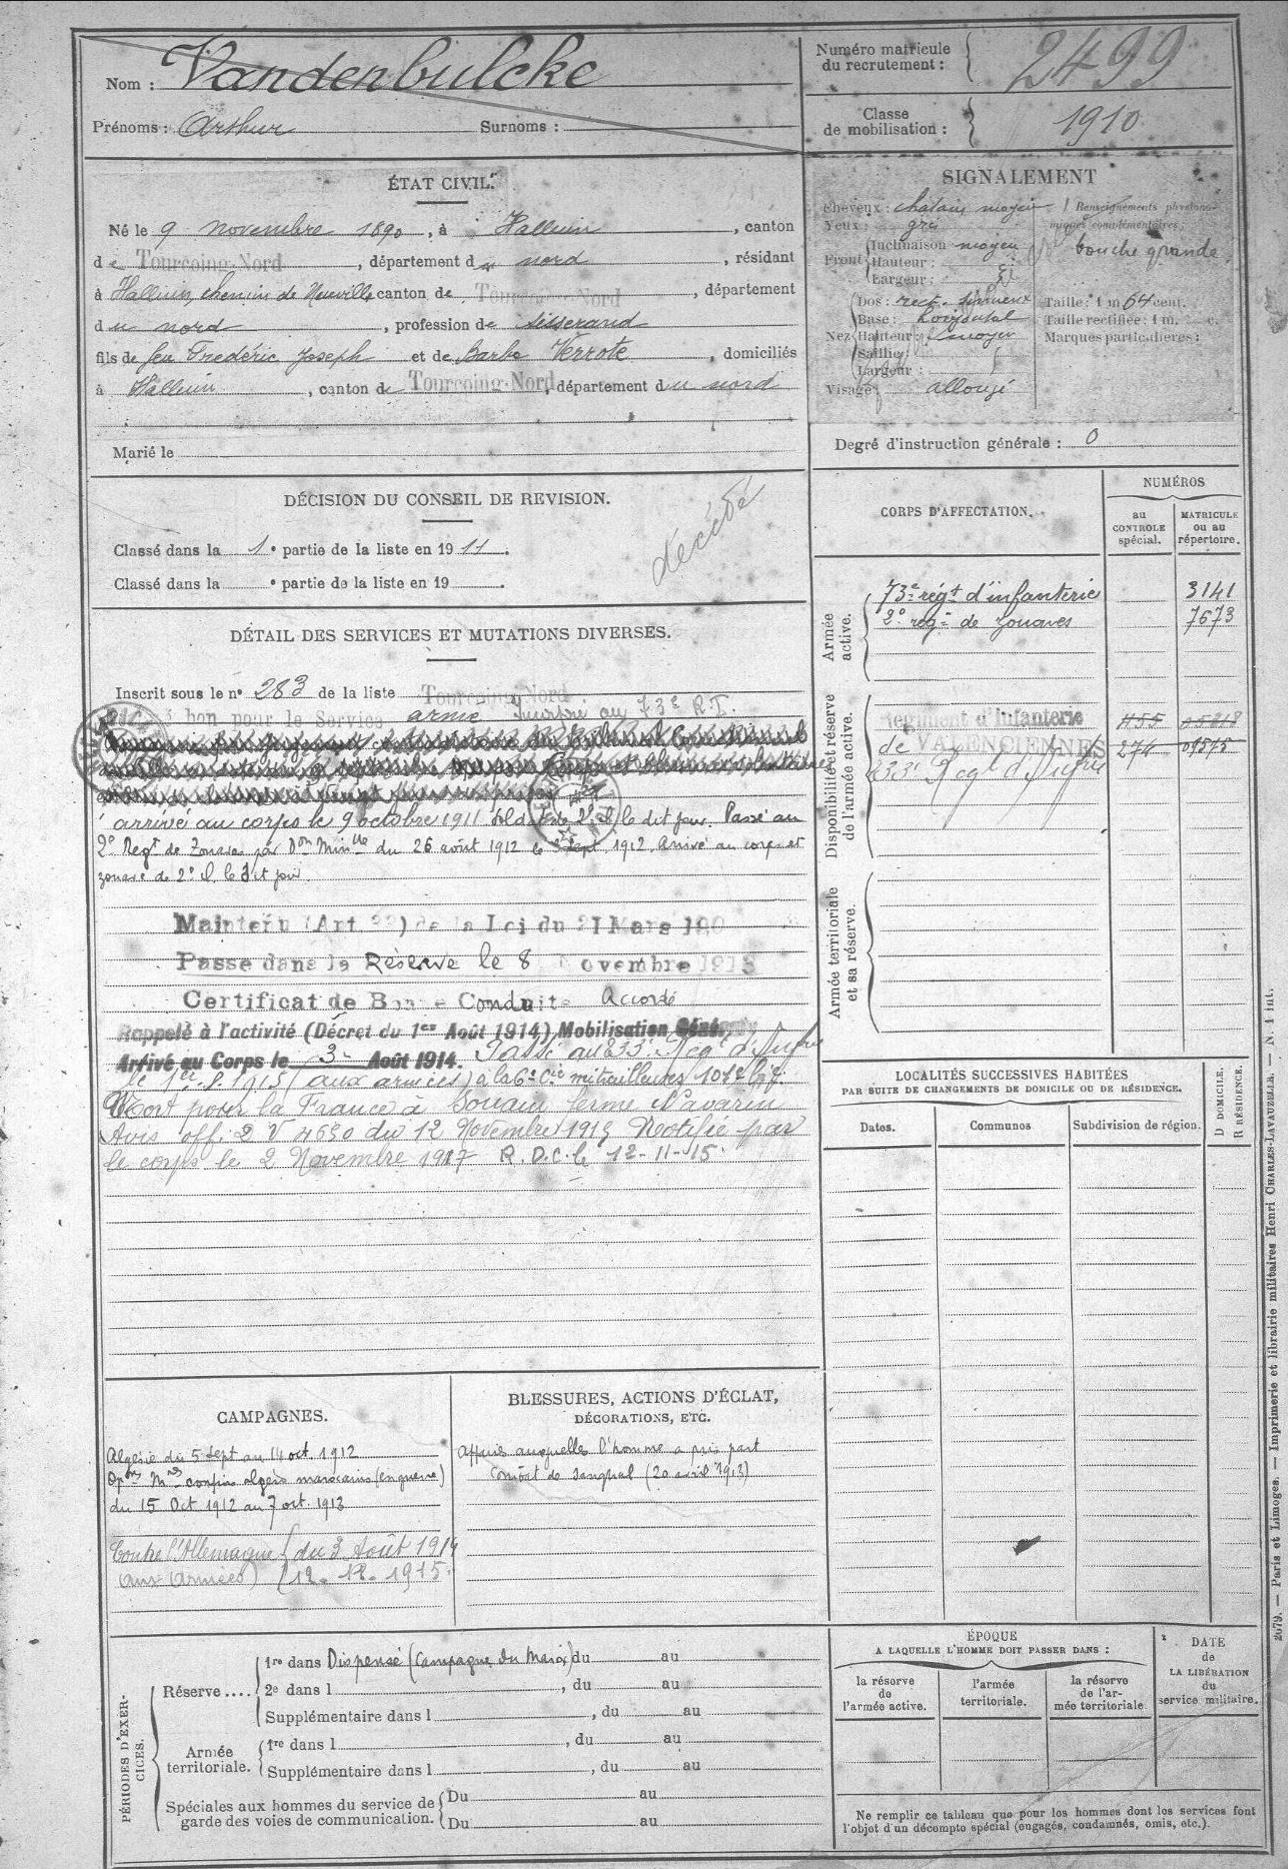 Nom : Vandenbulcke
Prénoms : Arthur Surnoms :
Numéro matricule
du recrutement : 2499
Classe
de mobilisation : 1910
ÉTAT CIVIL.
Né le 9 novembre 1890, à Halluin, canton
de Tourcoing-Nord, département du nord, résidant
à Halluin, chemin de Neuville canton de Tourcoing-Nord, département
du nord, profession de tisserand
fils de feu Frédéric Joseph et de Barbe Verrote, domiciliés
à Halluin, canton de Tourcoing-Nord, département du nord
Marié le
SIGNALEMENT
Cheveux : chatain moyen
Yeux : gris
Front Inclinaison moyen
Hauteur :
Largeur :
Nez Dos : rect. sinueux
Base : horizontal
Hauteur : moyen
Saillie :
Largeur :
Visage : allongé
Renseignements physionomiques complémentaires :
bouche grande
Taille : 1 m 64 cent.
Taille rectifiée : 1 m. c.
Marques particulières :
Degré d'instruction générale : 0
DÉCISION DU CONSEIL DE REVISION.
Classé dans la 1e partie de la liste en 1911.
Classé dans la e partie de la liste en 19 .
décédé
CORPS D'AFFECTATION.
NUMÉROS
au
CONTROLE
spécial.
MATRICULE
ou au
répertoire.
Armée
active.
73e régt d'infanterie 3141
2e regt de Zouaves 7673
Disponibilité et réserve
de l'armée active.
Régiment d'Infanterie 455
de VALENCIENNES 274 01575
233e Regt d'Infrie
Armée territoriale
et sa réserve.
DÉTAIL DES SERVICES ET MUTATIONS DIVERSES.
Inscrit sous le no 283 de la liste Tourcoing-Nord
bon pour le Service armé Incorporé au 73e R.I.
arrivé au corps le 9 octobre 1911 soldat de 2e Cl le dit jour. Passé au
2e Regt de Zouaves par Don Minlle du 26 août 1912 le 3 Sept. 1912. Arrivé au corps et
zouave de 2e Cl. le dit jour.
Maintenu (Art 33) de la Loi du 21 Mars 190
Passé dans la Réserve le 8 Novembre 1913
Certificat de Bonne Conduite Accordé
Rappelé à l'activité (Décret du 1er Août 1914) Mobilisation Géné
Arrivé au Corps le 3 Août 1914. Passé au 233e Regt d'Infrie
le 1er. 8. 1915 (aux armées) à la 6e Cie mitrailleuses 101e
Mort pour la France à Souain ferme Navarin
Avis off. 2 V 4630 du 12 Novembre 1915 Notifié par
le corps le 2 Novembre 1917 R.D.C. le 12-11-15.
LOCALITÉS SUCCESSIVES HABITÉES
PAR SUITE DE CHANGEMENTS DE DOMICILE OU DE RÉSIDENCE.
Dates.
Communes
Subdivision de région.
D DOMICILE.
R RÉSIDENCE.
CAMPAGNES.
Algérie du 5 Sept au 14 oct. 1912
Opons Mres confins algéro marocains (en guerre)
du 15 Oct 1912 au 7 oct. 1913
Contre l'Allemagne du 3 Août 1914
(aux Armées) 12.12.1915.
BLESSURES, ACTIONS D'ÉCLAT,
DÉCORATIONS, ETC.
Affaires auxquelles l'homme a pris part
combat de (20 avril 1913)
PÉRIODES D'EXERCICES.
Réserve .... 1re dans Dispensé (Campagne du Maroc) du au
2e dans l , du au
Supplémentaire dans l , du au
Armée
territoriale. 1re dans l , du au
Supplémentaire dans l , du au
Spéciales aux hommes du service de
garde des voies de communication. Du au
Du au
ÉPOQUE
A LAQUELLE L'HOMME DOIT PASSER DANS :
la réserve
de
l'armée active.
l'armée
territoriale.
la réserve
de l'ar-
mée territoriale
DATE
de
LA LIBÉRATION
du
service militaire.
Ne remplir ce tableau que pour les hommes dont les services font
l'objet d'un décompte spécial (engagés, condamnés, omis, etc.).
2679. — Paris et Limoges. — Imprimerie et librairie militaires Henri CHARLES-LAVAUZELLE. — N. 1 int.